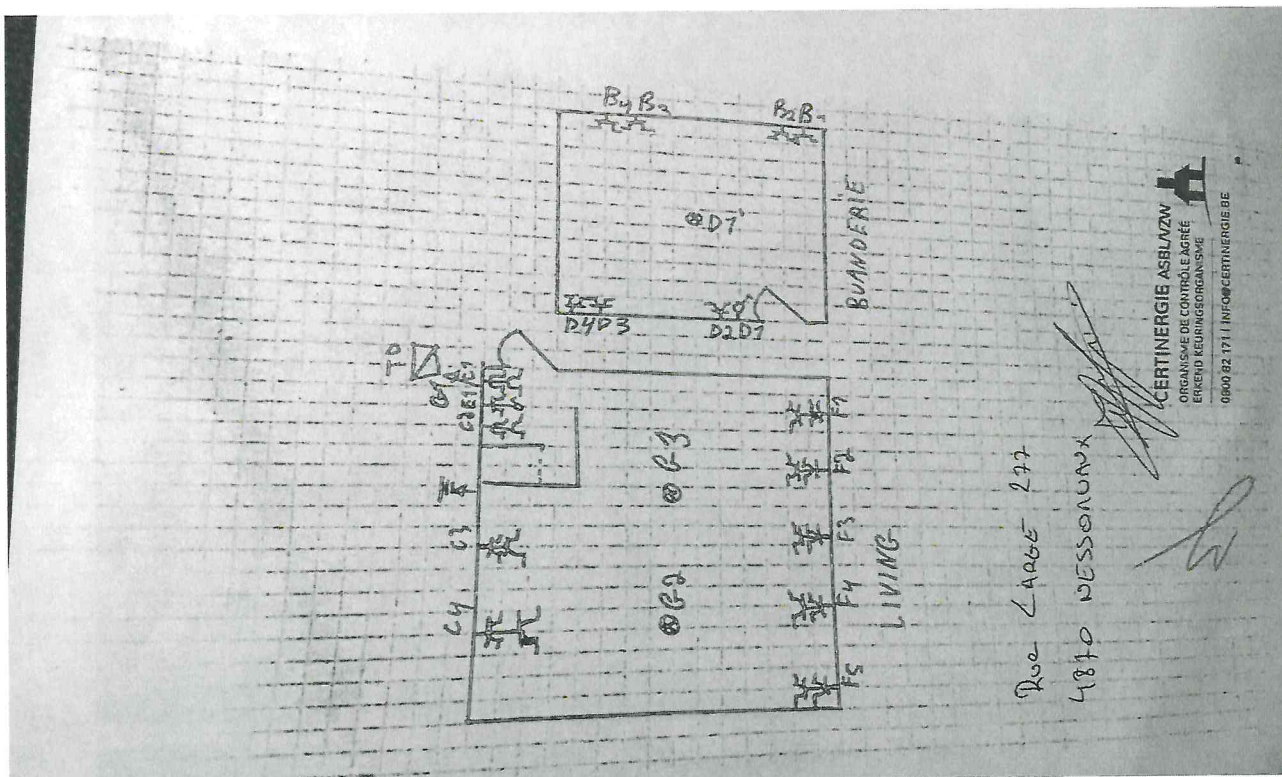 B4 B3
B2 B1
D1'
D4 D3
D2 D1
BUANDERIE
C4
C3
C2 E1 E1
G2
G3
F5
F4
F3
F2
F1
LIVING
Rue LARGE 277
4870 NESSONVAUX
CERTINERGIE ASBL/VZW
ORGANISME DE CONTRÔLE AGRÉÉ
ERKEND KEURINGSORGANISME
0800 82 171 | INFO@CERTINERGIE.BE